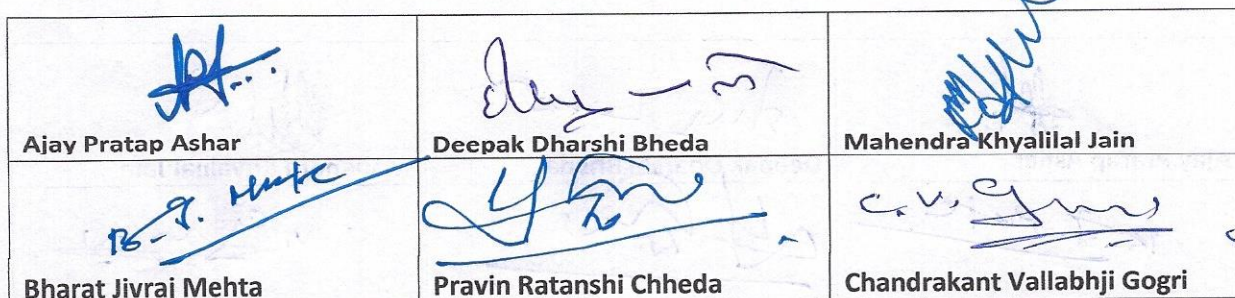 Ajay Pratap Ashar
Deepak Dharshi Bheda
Mahendra Khyalilal Jain
B. J. Mehta
C. V. Gogri
Bharat Jivraj Mehta
Pravin Ratanshi Chheda
Chandrakant Vallabhji Gogri